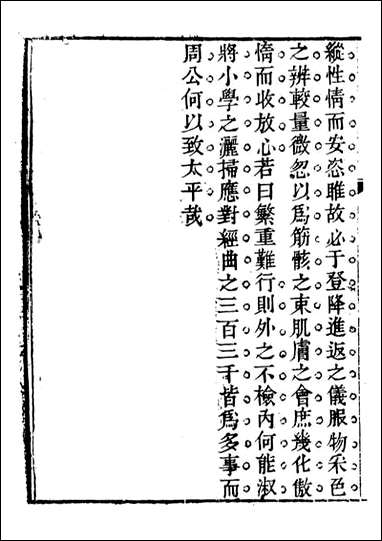 縱性情而安恣雎故必于登降進返之儀服物采色
之辨較量微忽以爲筋骸之束肌膚之會庶幾化傲
惰而收放心若曰繁重難行則外之不檢內何能淑
將小學之灑掃應對經曲之三百三千皆爲多事而
周公何以致太平哉